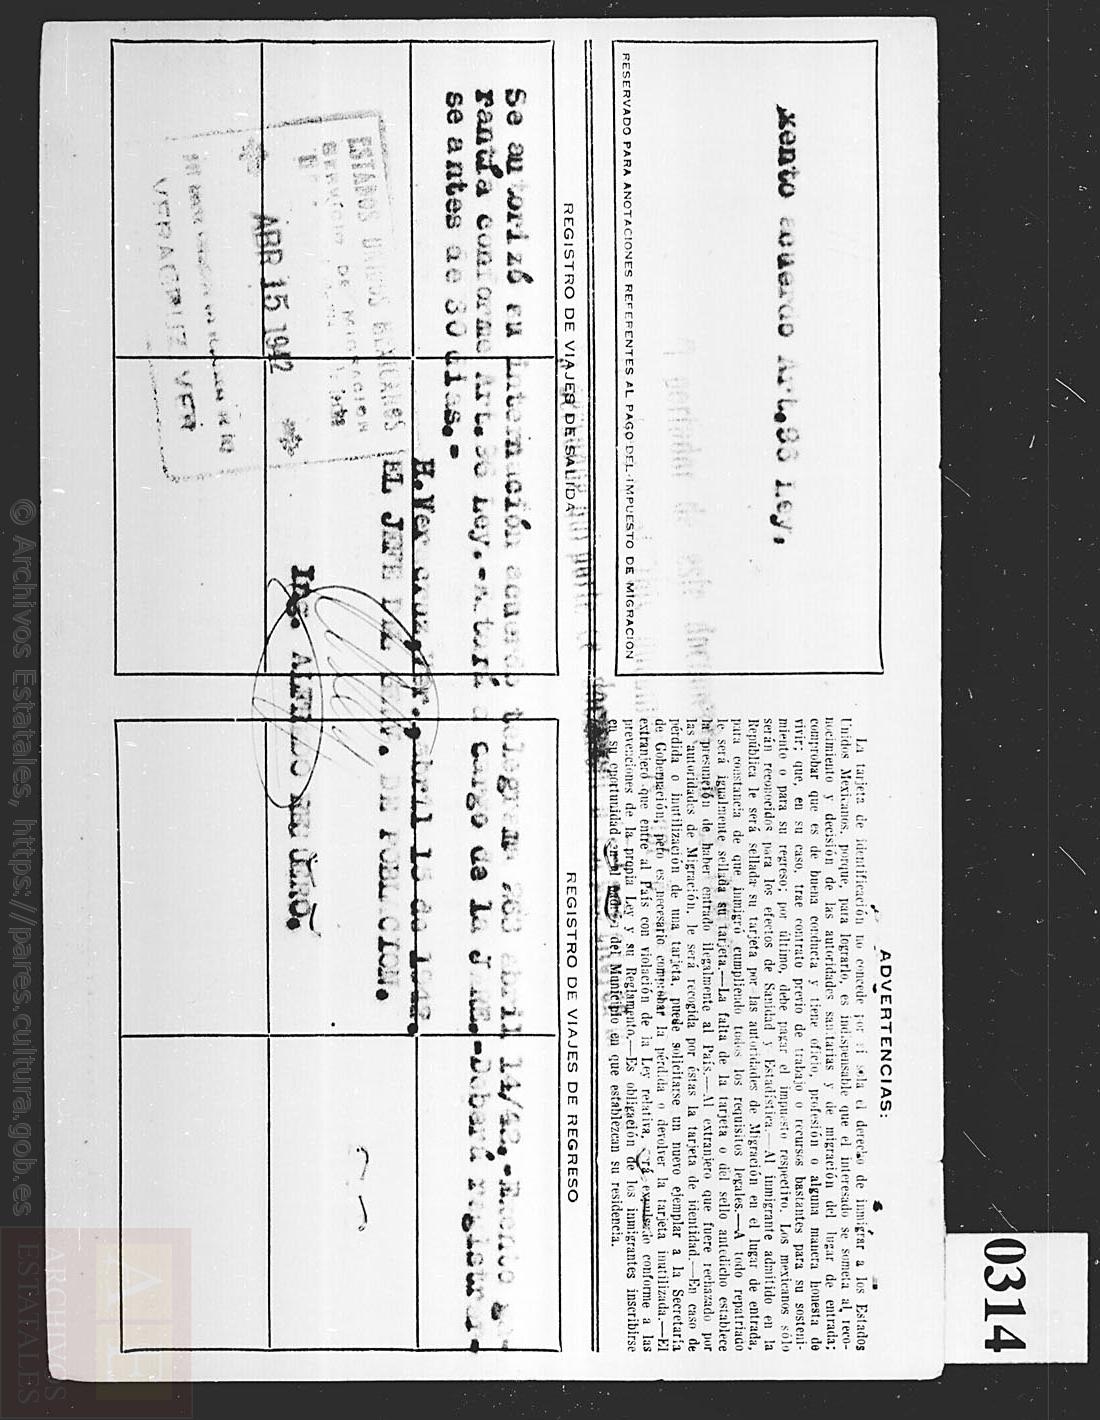 0314
Exento acuerdo Art.86 Ley.
RESERVADO PARA ANOTACIONES REFERENTES AL PAGO DEL IMPUESTO DE MIGRACION
ADVERTENCIAS:
La tarjeta de identificación no concede por sí sola el derecho de inmigrar a los Estados
Unidos Mexicanos, porque, para lograrlo, es indispensable que el interesado se someta al reco-
nocimiento y decisión de las autoridades sanitarias y de migración del lugar de entrada;
comprobar que es de buena conducta y tiene oficio, profesión o alguna manera honesta de
vivir; que, en su caso, trae contrato previo de trabajo o recursos bastantes para su sosteni-
miento o para su regreso; por último, debe pagar el impuesto respectivo. Los mexicanos sólo
serán reconocidos para los efectos de Sanidad y Estadística.—Al inmigrante admitido en la
República le será sellada su tarjeta por las autoridades de Migración en el lugar de entrada,
para constancia de que inmigró cumpliendo todos los requisitos legales.—A todo repatriado
le será igualmente sellada su tarjeta.—La falta de la tarjeta o del sello antedicho establece
la presunción de haber entrado ilegalmente al País.—Al extranjero que fuere rechazado por
las autoridades de Migración, le será recogida por éstas la tarjeta de identidad.—En caso de
pérdida o inutilización de una tarjeta, puede solicitarse un nuevo ejemplar a la Secretaría
de Gobernación; pero es necesario comprobar la pérdida o devolver la tarjeta inutilizada.—El
extranjero que entre al País con violación de la Ley relativa, será expulsado conforme a las
prevenciones de la propia Ley y su Reglamento.—Es obligación de los inmigrantes inscribirse
en su oportunidad en el padrón del Municipio en que establezcan su residencia.
REGISTRO DE VIAJES DE SALIDA
REGISTRO DE VIAJES DE REGRESO
Se autorizó su internación acuerdo telegrama abril 14/42.-Exento
rantía conforme Art. Ley.- cargo de la J.ARE.-Deberá registrar-
se antes de 30 días.-
H.Veracruz,Ver., abril 15 de 1942.
EL JEFE DEL SERV. DE POBLACION.
ESTADOS UNIDOS MEXICANOS
SERVICIO DE MIGRACION
ABR 15 1942
VERACRUZ VER
© Archivos Estatales, https://pares.cultura.gob.es
AE
ARCHIVOS
ESTATALES